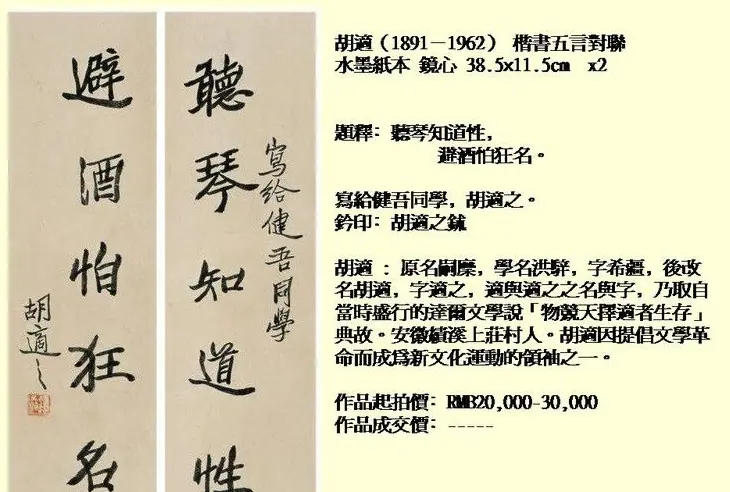 聽琴知道性
寫給健吾同學
避酒怕狂名
胡適之
胡適（1891－1962） 楷書五言對聯
水墨紙本 鏡心 38.5x11.5cm x2
題釋: 聽琴知道性，
避酒怕狂名。
寫給健吾同學，胡適之。
鈐印: 胡適之鉥
胡適 : 原名嗣穈，學名洪騂，字希疆，後改
名胡適，字適之，適與適之之名與字，乃取自
當時盛行的達爾文學說「物競天擇適者生存」
典故。安徽績溪上莊村人。胡適因提倡文學革
命而成爲新文化運動的領袖之一。
作品起拍價: RMB20,000-30,000
作品成交價: -----